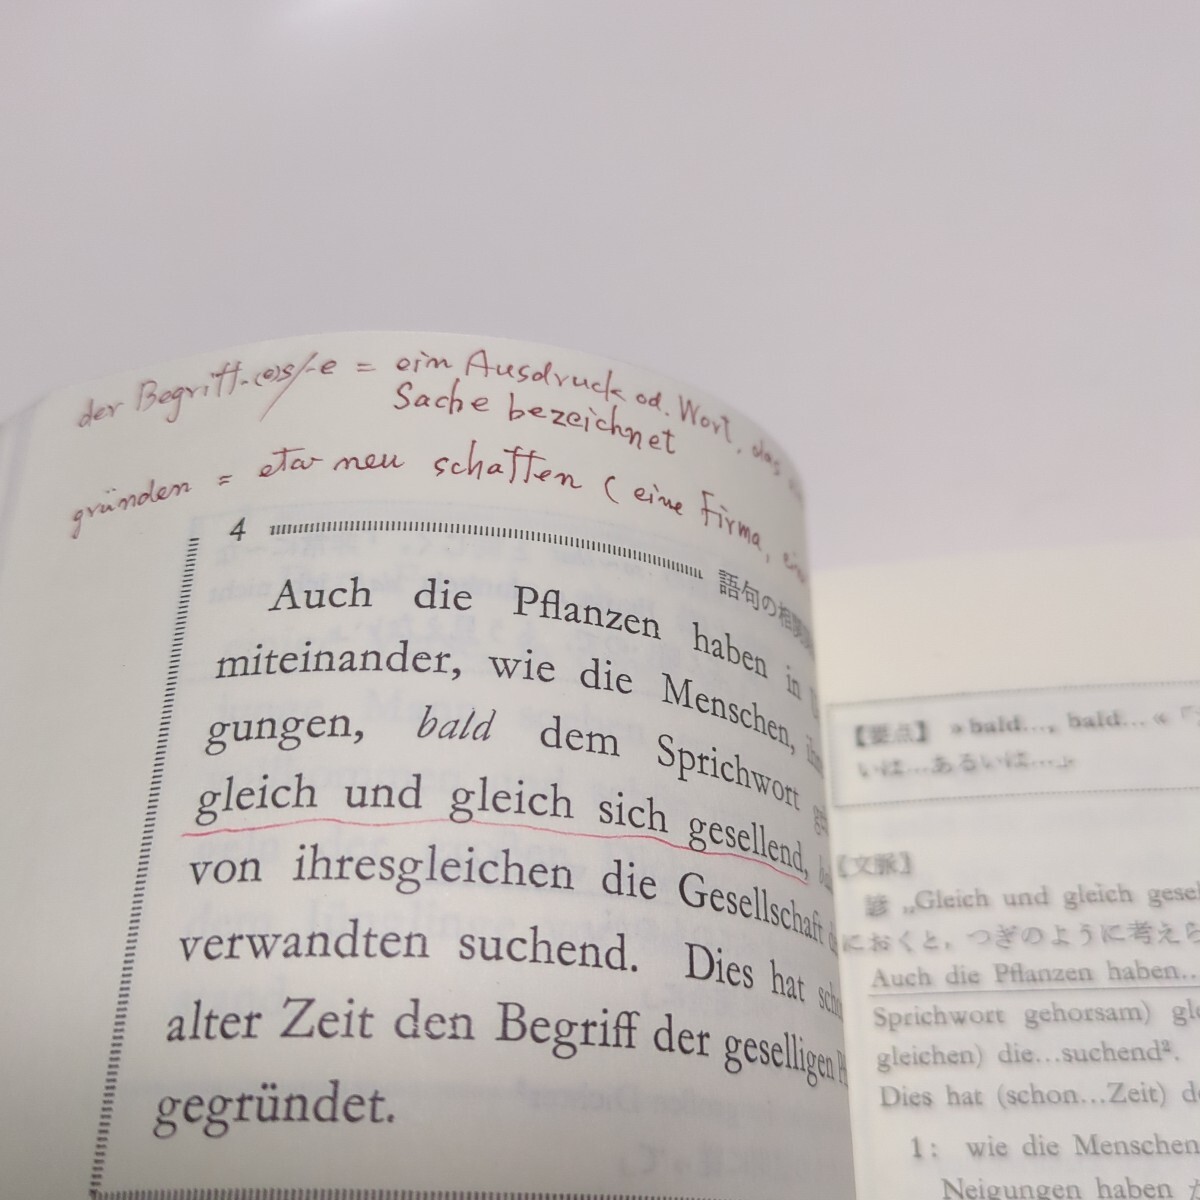 der Begriff-(e)s/-e = ein Ausdruck od. Wort, das
Sache bezeichnet
gründen = etw neu schaffen ( eine Firma,
4
語句の相関
Auch die Pflanzen haben in
miteinander, wie die Menschen,
gungen, bald dem Sprichwort
gleich und gleich sich gesellend,
von ihresgleichen die Gesellschaft
verwandten suchend. Dies hat
alter Zeit den Begriff der geselligen
gegründet.
【要点】 »bald..., bald...«
いは...あるいは...」
【文脈】
諺 „Gleich und gleich
におくと, つぎのように考え
Auch die Pflanzen haben...
Sprichwort gehorsam)
gleichen) die...suchend².
Dies hat (schon...Zeit)
1: wie die Menschen
Neigungen haben